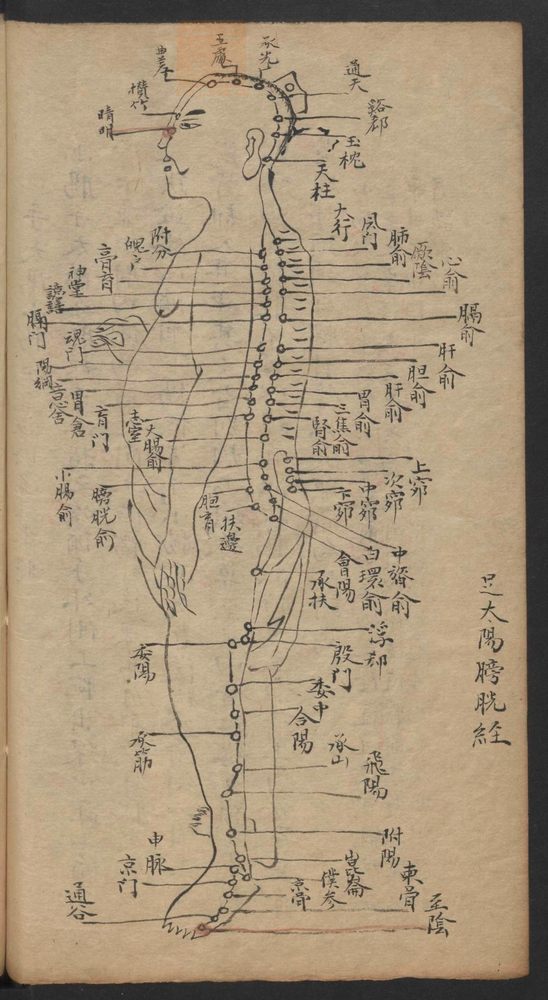 足太陽膀胱経
曲差
五處
承光
通天
攅竹
晴明
絡郄
玉枕
天柱
大杼
風門
肺俞
厥陰
心俞
附分
魄戶
膏肓
神堂
譩譆
膈門
魂門
陽綱
意舍
胃倉
肓門
志室
大膓俞
膈俞
肝俞
胆俞
肝俞
胃俞
三焦俞
腎俞
小膓俞
膀胱俞
胞肓
扶邊
上窌
次窌
中窌
下窌
中膂俞
白環俞
會陽
承扶
浮郄
殷門
委陽
委中
合陽
承筋
承山
飛陽
附陽
申脉
京門
崑崙
僕参
京骨
束骨
通谷
至陰